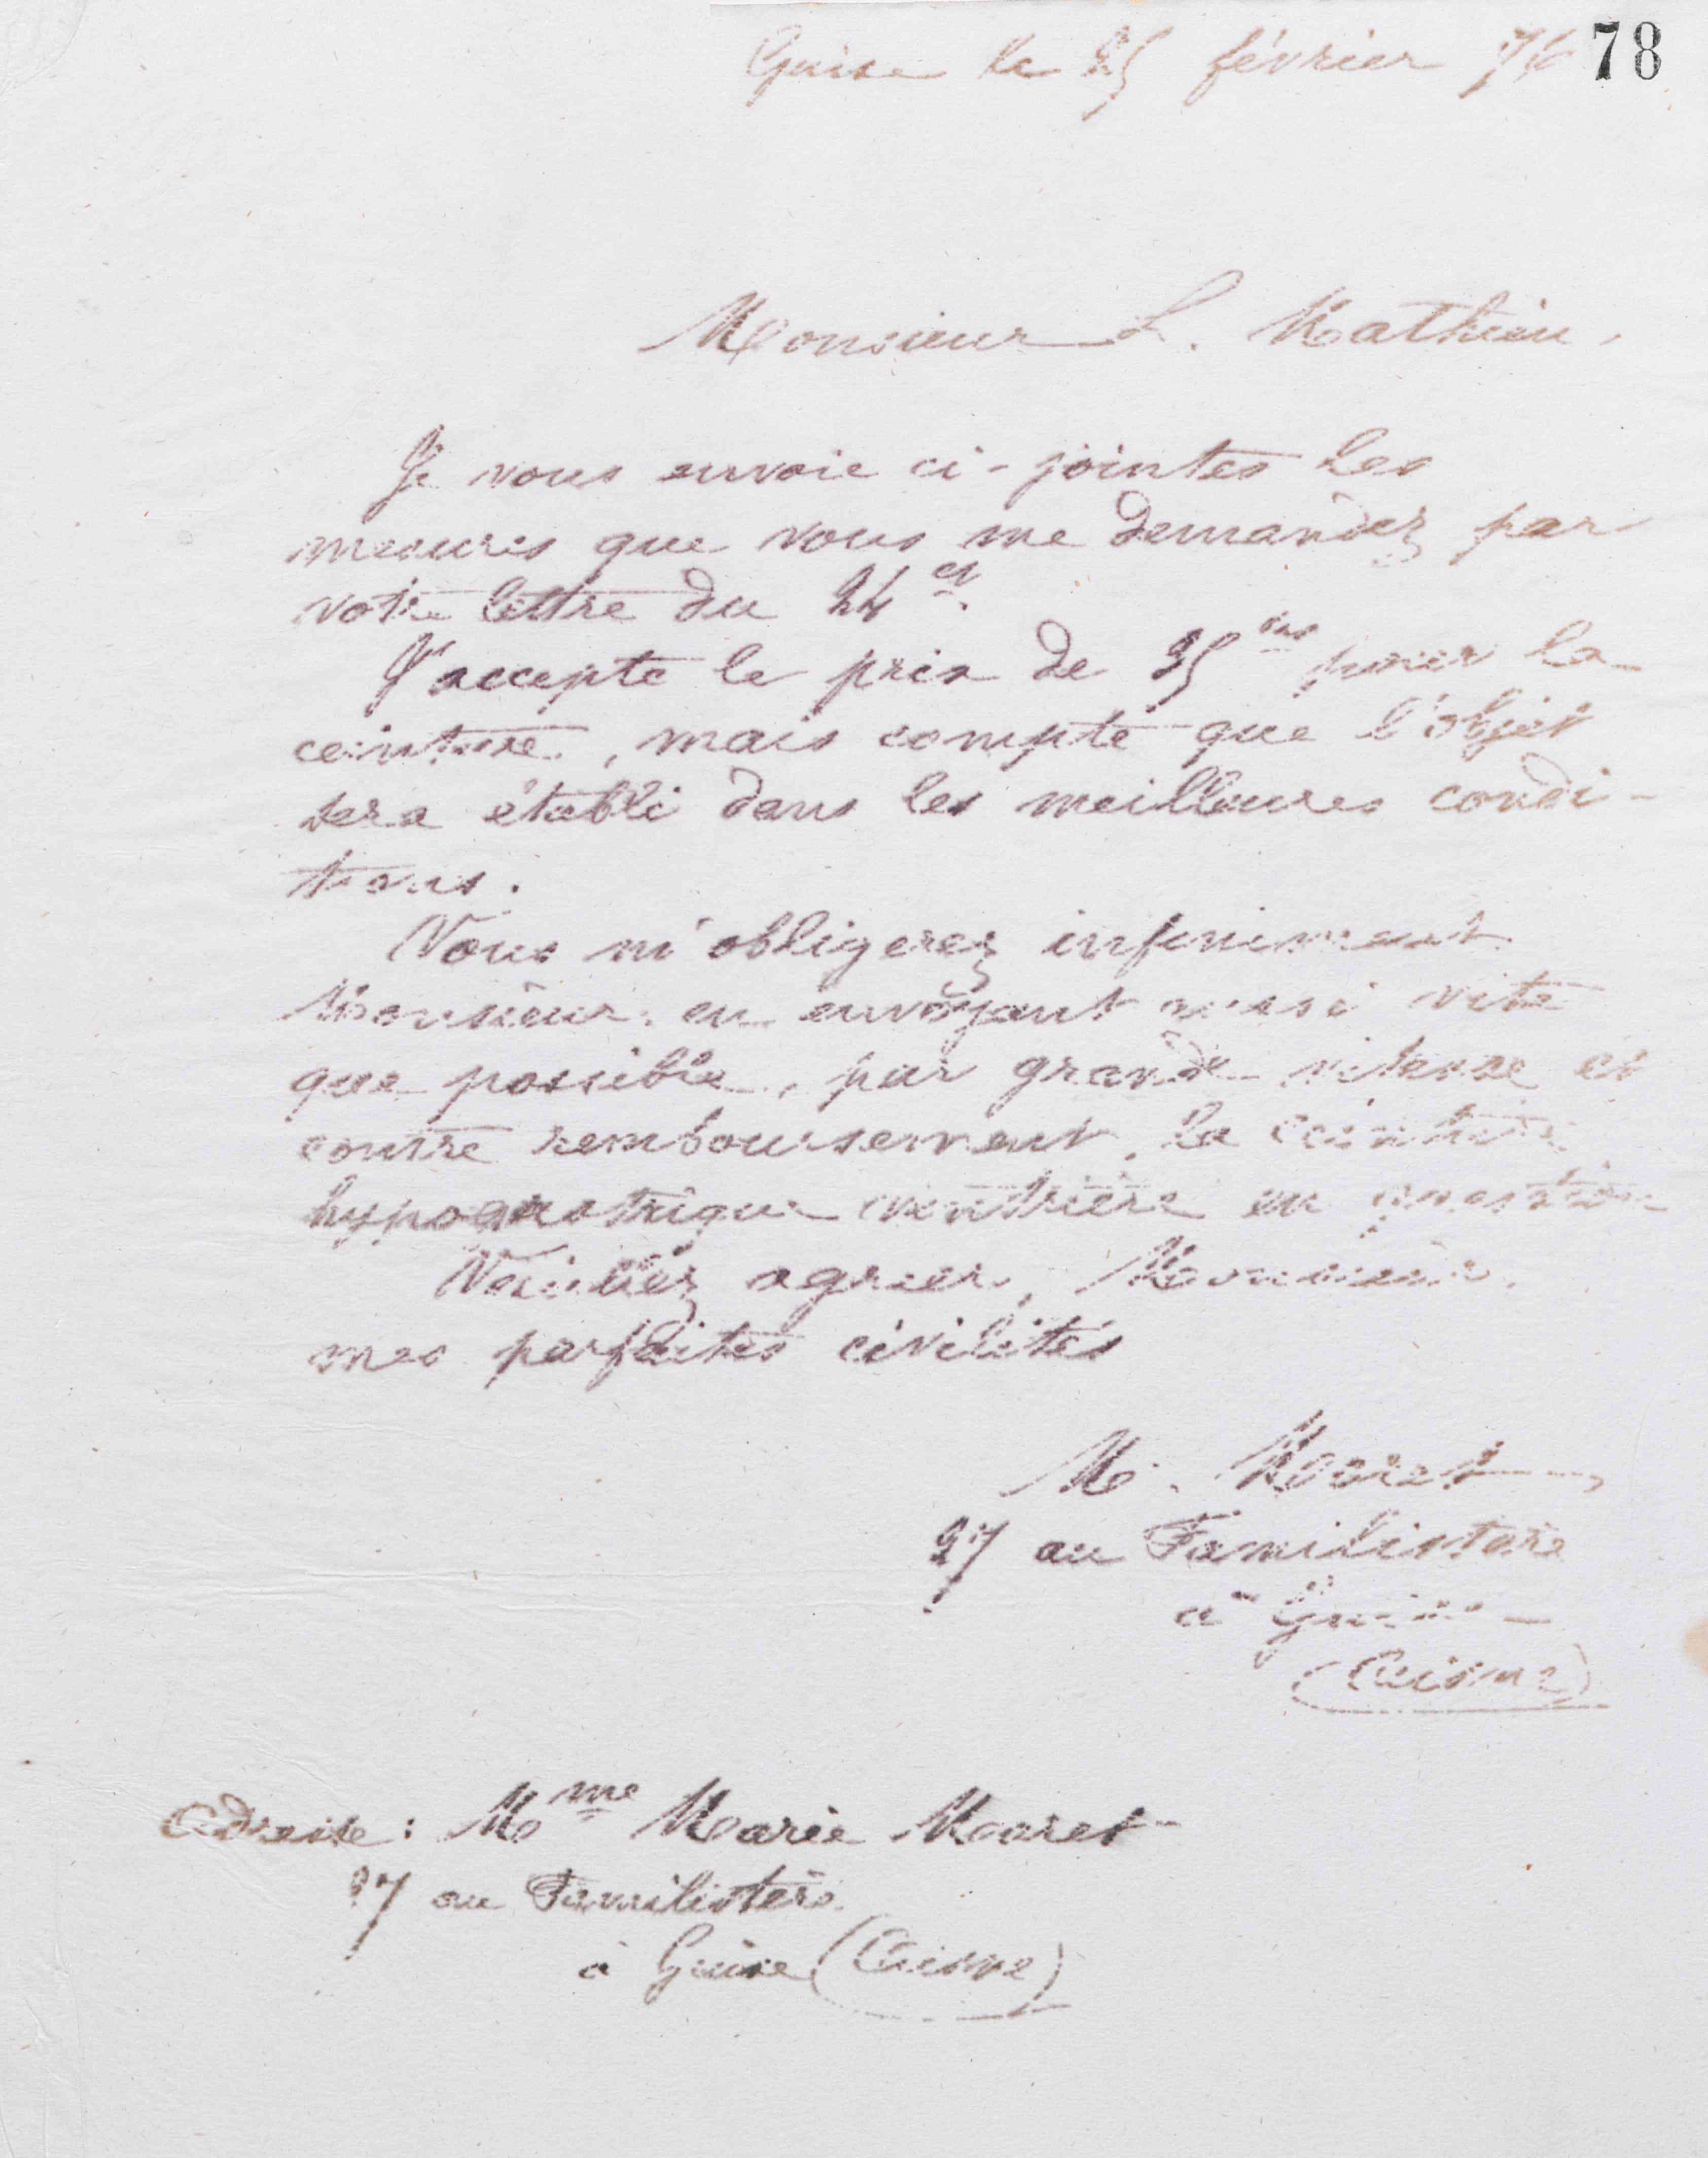 Guise le 25 février 76 78
Monsieur L. Mathieu,
Je vous envoie ci-jointes les
mesures que vous me demandez par
votre lettre du 24 ct.
J'accepte le prix de 35 frs pour la
ceinture, mais compte que l'objet
sera établi dans les meilleures condi-
tions.
Vous m'obligerez infiniment
Monsieur, en envoyant aussi vite
que possible, par grande vitesse et
contre remboursement, la ceinture
hypogastrique ventrière en question
Veuillez agréer, Monsieur,
mes parfaites civilités
M. Moret
27 au Familistère
à Guise
(Aisne)
Adresse : Mme Marie Moret
27 au Familistère
à Guise (Aisne)